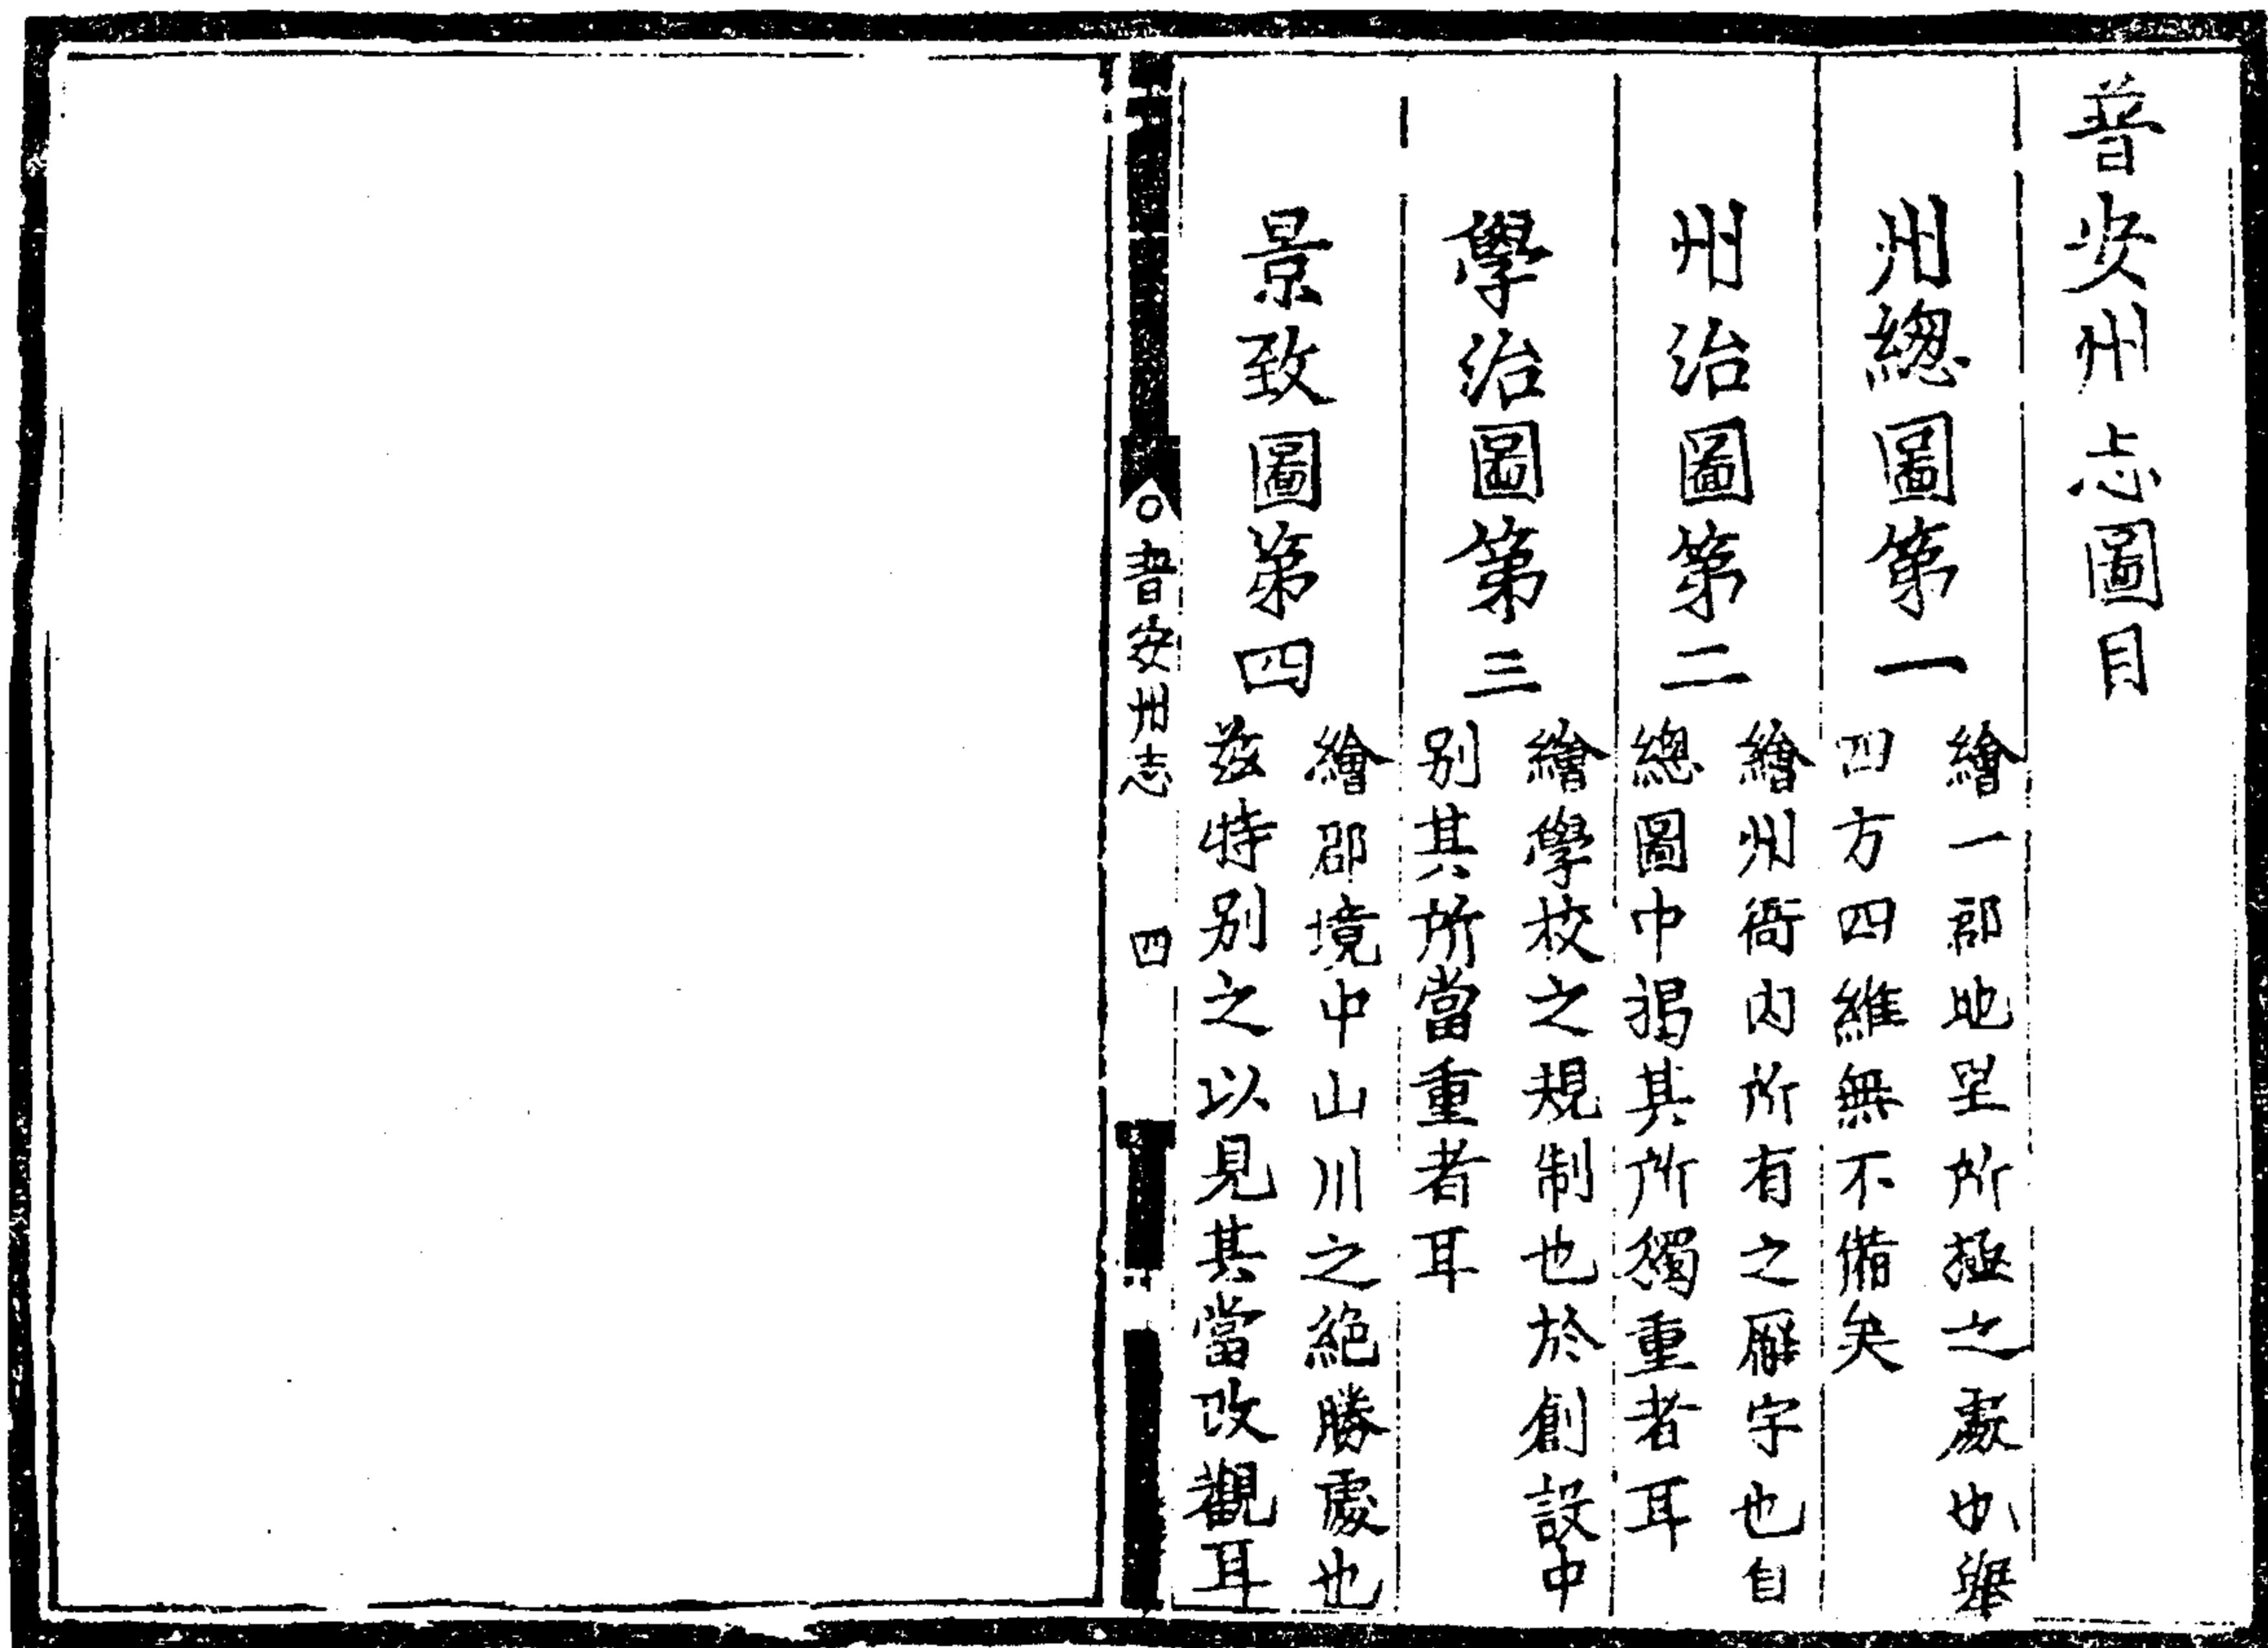 普安州志圖目
州總圖第一
繪一郡地里所極之處也舉
四方四維無不備矣
州治圖第二
繪州衙内所有之廨宇也自
總圖中揭其所獨重者耳
學治圖第三
繪學校之規制也於創設中
别其所當重者耳
景致圖第四
繪郡境中山川之絕勝處也
茲特别之以見其當改觀耳
普安州志
四